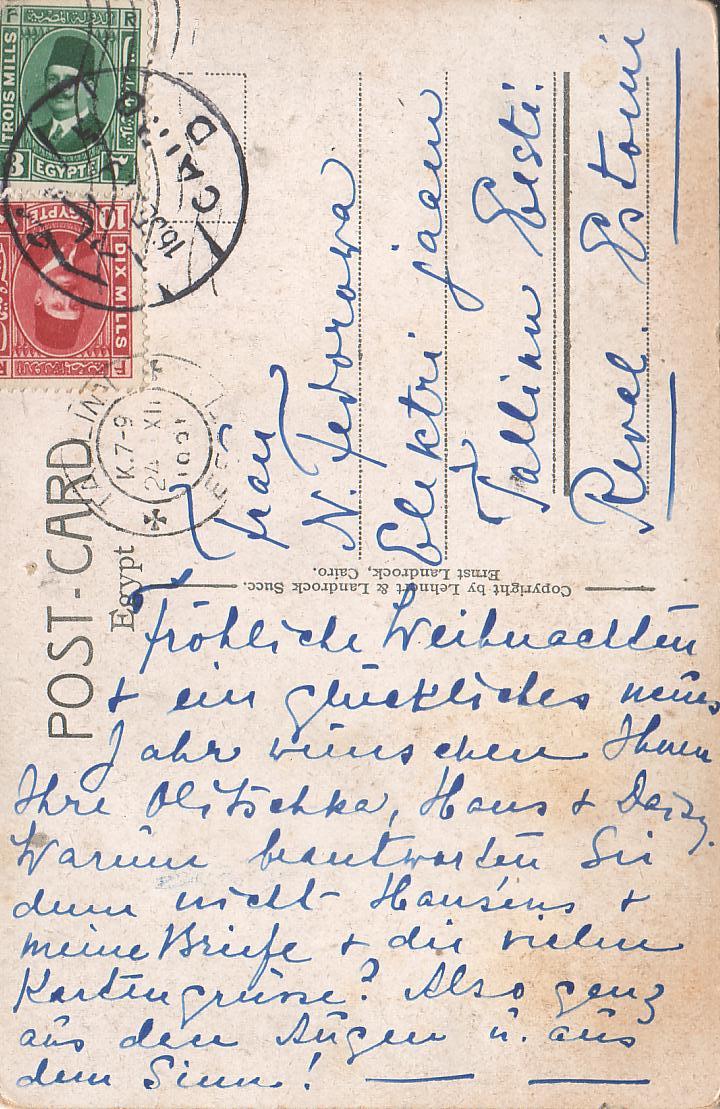 POST-CARD
Egypt
Copyright by Lehnert & Landrock Succ.
Ernst Landrock, Cairo.
TROIS MILLS
3 EGYPTE
10 EGYPTE
DIX MILLS
CAIRO
TALLINN
K.7-9
24 XII
EESTI
Frau
N. Fedorowa
Elektri jaam
Tallinn Eesti.
Reval. Estonie
Fröhliche Weihnachten
+ ein glückliches neues
Jahr wünschen Ihnen
Ihre Olitschka, Hans + Daisy.
Warum beantworten Sie
denn nicht Hansens +
meine Briefe + die vielen
Kartengrüsse? Also ganz
aus den Augen u. aus
dem Sinn!